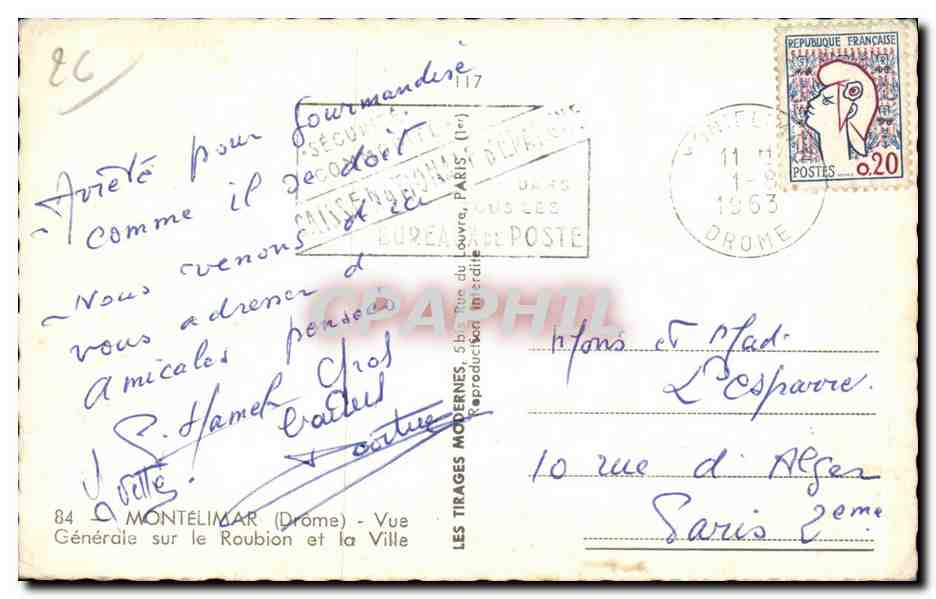 26
Arrêté pour gourmandise
comme il se doit
Nous venons d'ici
vous adresser d
amicales pensées
P. Hamel Gros
84 - MONTELIMAR (Drôme) - Vue
Générale sur le Roubion et la Ville
117
LES TIRAGES MODERNES, 5 bis Rue du Louvre, PARIS. (1er)
Reproduction interdite
SÉCURITÉ
CAISSE NATIONALE D'EPARGNE
DANS
TOUS LES
BUREAUX DE POSTE
11 H
1-8
1963
DROME
REPUBLIQUE FRANÇAISE
POSTES 0,20
CPAPHIL
Mons et Mad.
Lesparre.
10 rue d'Alger
Paris 2eme